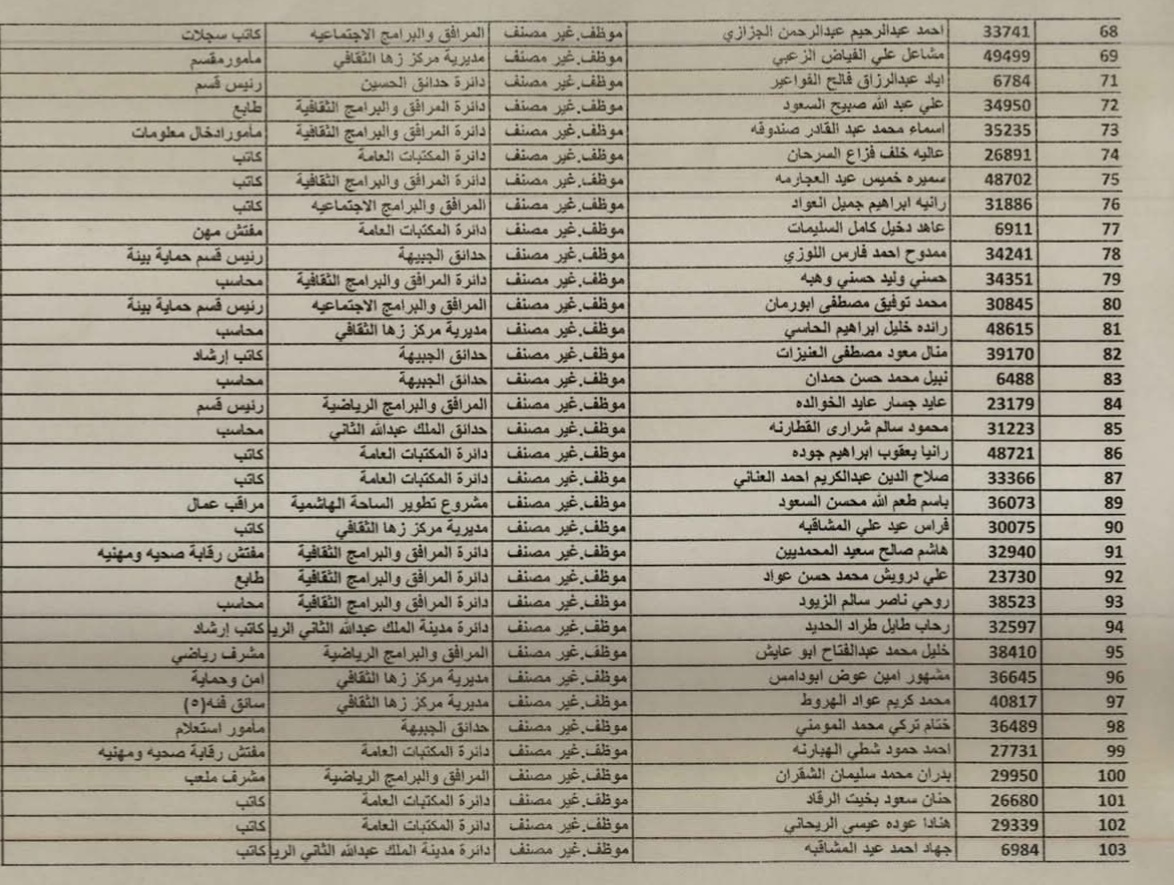 68 33741 احمد عبدالرحيم عبدالرحمن الجزازي موظف.غير مصنف المرافق والبرامج الاجتماعيه كاتب سجلات
69 49499 مشاعل علي الفياض الزعبي موظف.غير مصنف مديرية مركز زها الثقافي مأمورمقسم
71 6784 اياد عبدالرزاق فالح الفواعير موظف.غير مصنف دائرة حدائق الحسين رئيس قسم
72 34950 علي عبد الله صبيح السعود موظف.غير مصنف دائرة المرافق والبرامج الثقافية طابع
73 35235 اسماء محمد عبد القادر صندوقه موظف.غير مصنف دائرة المرافق والبرامج الثقافية مأمورادخال معلومات
74 26891 عاليه خلف فزاع السرحان موظف.غير مصنف دائرة المكتبات العامة كاتب
75 48702 سميره خميس عيد العجارمه موظف.غير مصنف دائرة المرافق والبرامج الثقافية كاتب
76 31886 رانيه ابراهيم جميل العواد موظف.غير مصنف المرافق والبرامج الاجتماعيه كاتب
77 6911 عاهد دخيل كامل السليمات موظف.غير مصنف دائرة المكتبات العامة مفتش مهن
78 34241 ممدوح احمد فارس اللوزي موظف.غير مصنف حدائق الجبيهة رئيس قسم حماية بيئة
79 34351 حسني وليد حسني وهبه موظف.غير مصنف دائرة المرافق والبرامج الثقافية محاسب
80 30845 محمد توفيق مصطفى ابورمان موظف.غير مصنف المرافق والبرامج الاجتماعيه رئيس قسم حماية بيئة
81 48615 رائده خليل ابراهيم الحاسي موظف.غير مصنف مديرية مركز زها الثقافي محاسب
82 39170 منال معود مصطفى العنيزات موظف.غير مصنف حدائق الجبيهة كاتب إرشاد
83 6488 نبيل محمد حسن حمدان موظف.غير مصنف حدائق الجبيهة محاسب
84 23179 عايد جسار عايد الخوالده موظف.غير مصنف المرافق والبرامج الرياضية رئيس قسم
85 31223 محمود سالم شرارى القطارنه موظف.غير مصنف حدائق الملك عبدالله الثاني محاسب
86 48721 رانيا يعقوب ابراهيم جوده موظف.غير مصنف دائرة المكتبات العامة كاتب
87 33366 صلاح الدين عبدالكريم احمد العناني موظف.غير مصنف دائرة المكتبات العامة كاتب
89 36073 باسم طعم الله محسن السعود موظف.غير مصنف مشروع تطوير الساحة الهاشمية مراقب عمال
90 30075 فراس عيد علي المشاقبه موظف.غير مصنف مديرية مركز زها الثقافي كاتب
91 32940 هاشم صالح سعيد المحمديين موظف.غير مصنف دائرة المرافق والبرامج الثقافية مفتش رقابة صحيه ومهنيه
92 23730 علي درويش محمد حسن عواد موظف.غير مصنف دائرة المرافق والبرامج الثقافية طابع
93 38523 روحي ناصر سالم الزيود موظف.غير مصنف دائرة المرافق والبرامج الثقافية محاسب
94 32597 رحاب طايل طراد الحديد موظف.غير مصنف دائرة مدينة الملك عبدالله الثاني الريا كاتب إرشاد
95 38410 خليل محمد عبدالفتاح ابو عايش موظف.غير مصنف المرافق والبرامج الرياضية مشرف رياضي
96 36645 مشهور امين عوض ابودامس موظف.غير مصنف مديرية مركز زها الثقافي امن وحماية
97 40817 محمد كريم عواد الهروط موظف.غير مصنف مديرية مركز زها الثقافي سائق فئه(٥)
98 36489 ختام تركي محمد المومني موظف.غير مصنف حدائق الجبيهة مأمور استعلام
99 27731 احمد حمود شطي الهبارنه موظف.غير مصنف دائرة المكتبات العامة مفتش رقابة صحيه ومهنيه
100 29950 بدران محمد سليمان الشقران موظف.غير مصنف المرافق والبرامج الرياضية مشرف ملعب
101 26680 حنان سعود بخيت الرقاد موظف.غير مصنف دائرة المكتبات العامة كاتب
102 29339 هنادا عوده عيسى الريحاني موظف.غير مصنف دائرة المكتبات العامة كاتب
103 6984 جهاد احمد عيد المشاقبه موظف.غير مصنف دائرة مدينة الملك عبدالله الثاني الريا كاتب